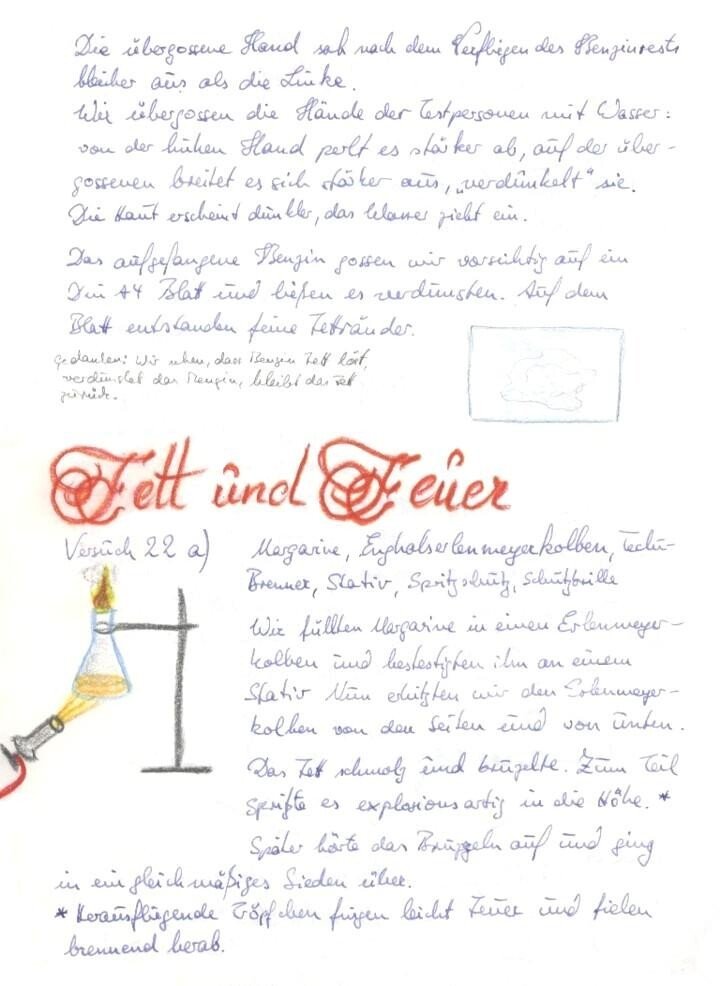 Die übergossene Hand sah nach dem Verfliegen des Benzinrests
bleicher aus als die Linke.
Wir übergossen die Hände der Testpersonen mit Wasser:
von der linken Hand perlt es stärker ab, auf der über-
gossenen breitet es sich stärker aus, „verdunkelt" sie.
Die Haut erscheint dunkler, das Wasser zieht ein.
Das aufgefangene Benzin gossen wir vorsichtig auf ein
Din A4 Blatt und ließen es verdunsten. Auf dem
Blatt entstanden feine Fettränder.
Gedanken: Wir sehen, dass Benzin Fett löst,
verdunstet das Benzin, bleibt das Fett
zurück.
Fett und Feuer
Versuch 22 a)
Margarine, Enghalserlenmeyerkolben, Teclu-
Brenner, Stativ, Spritzschutz, Schutzbrille
Wir füllten Margarine in einen Erlenmeyer-
kolben und befestigten ihn an einem
Stativ Nun erhitzten wir den Erlenmeyer-
kolben von den Seiten und von unten.
Das Fett schmolz und bruzelte. Zum Teil
spritzte es explosionsartig in die Höhe. *
Später hörte das Bruzzeln auf und ging
in ein gleichmäßiges Sieden über.
* Herausfliegende Tröpfchen fingen leicht Feuer und fielen
brennend herab.